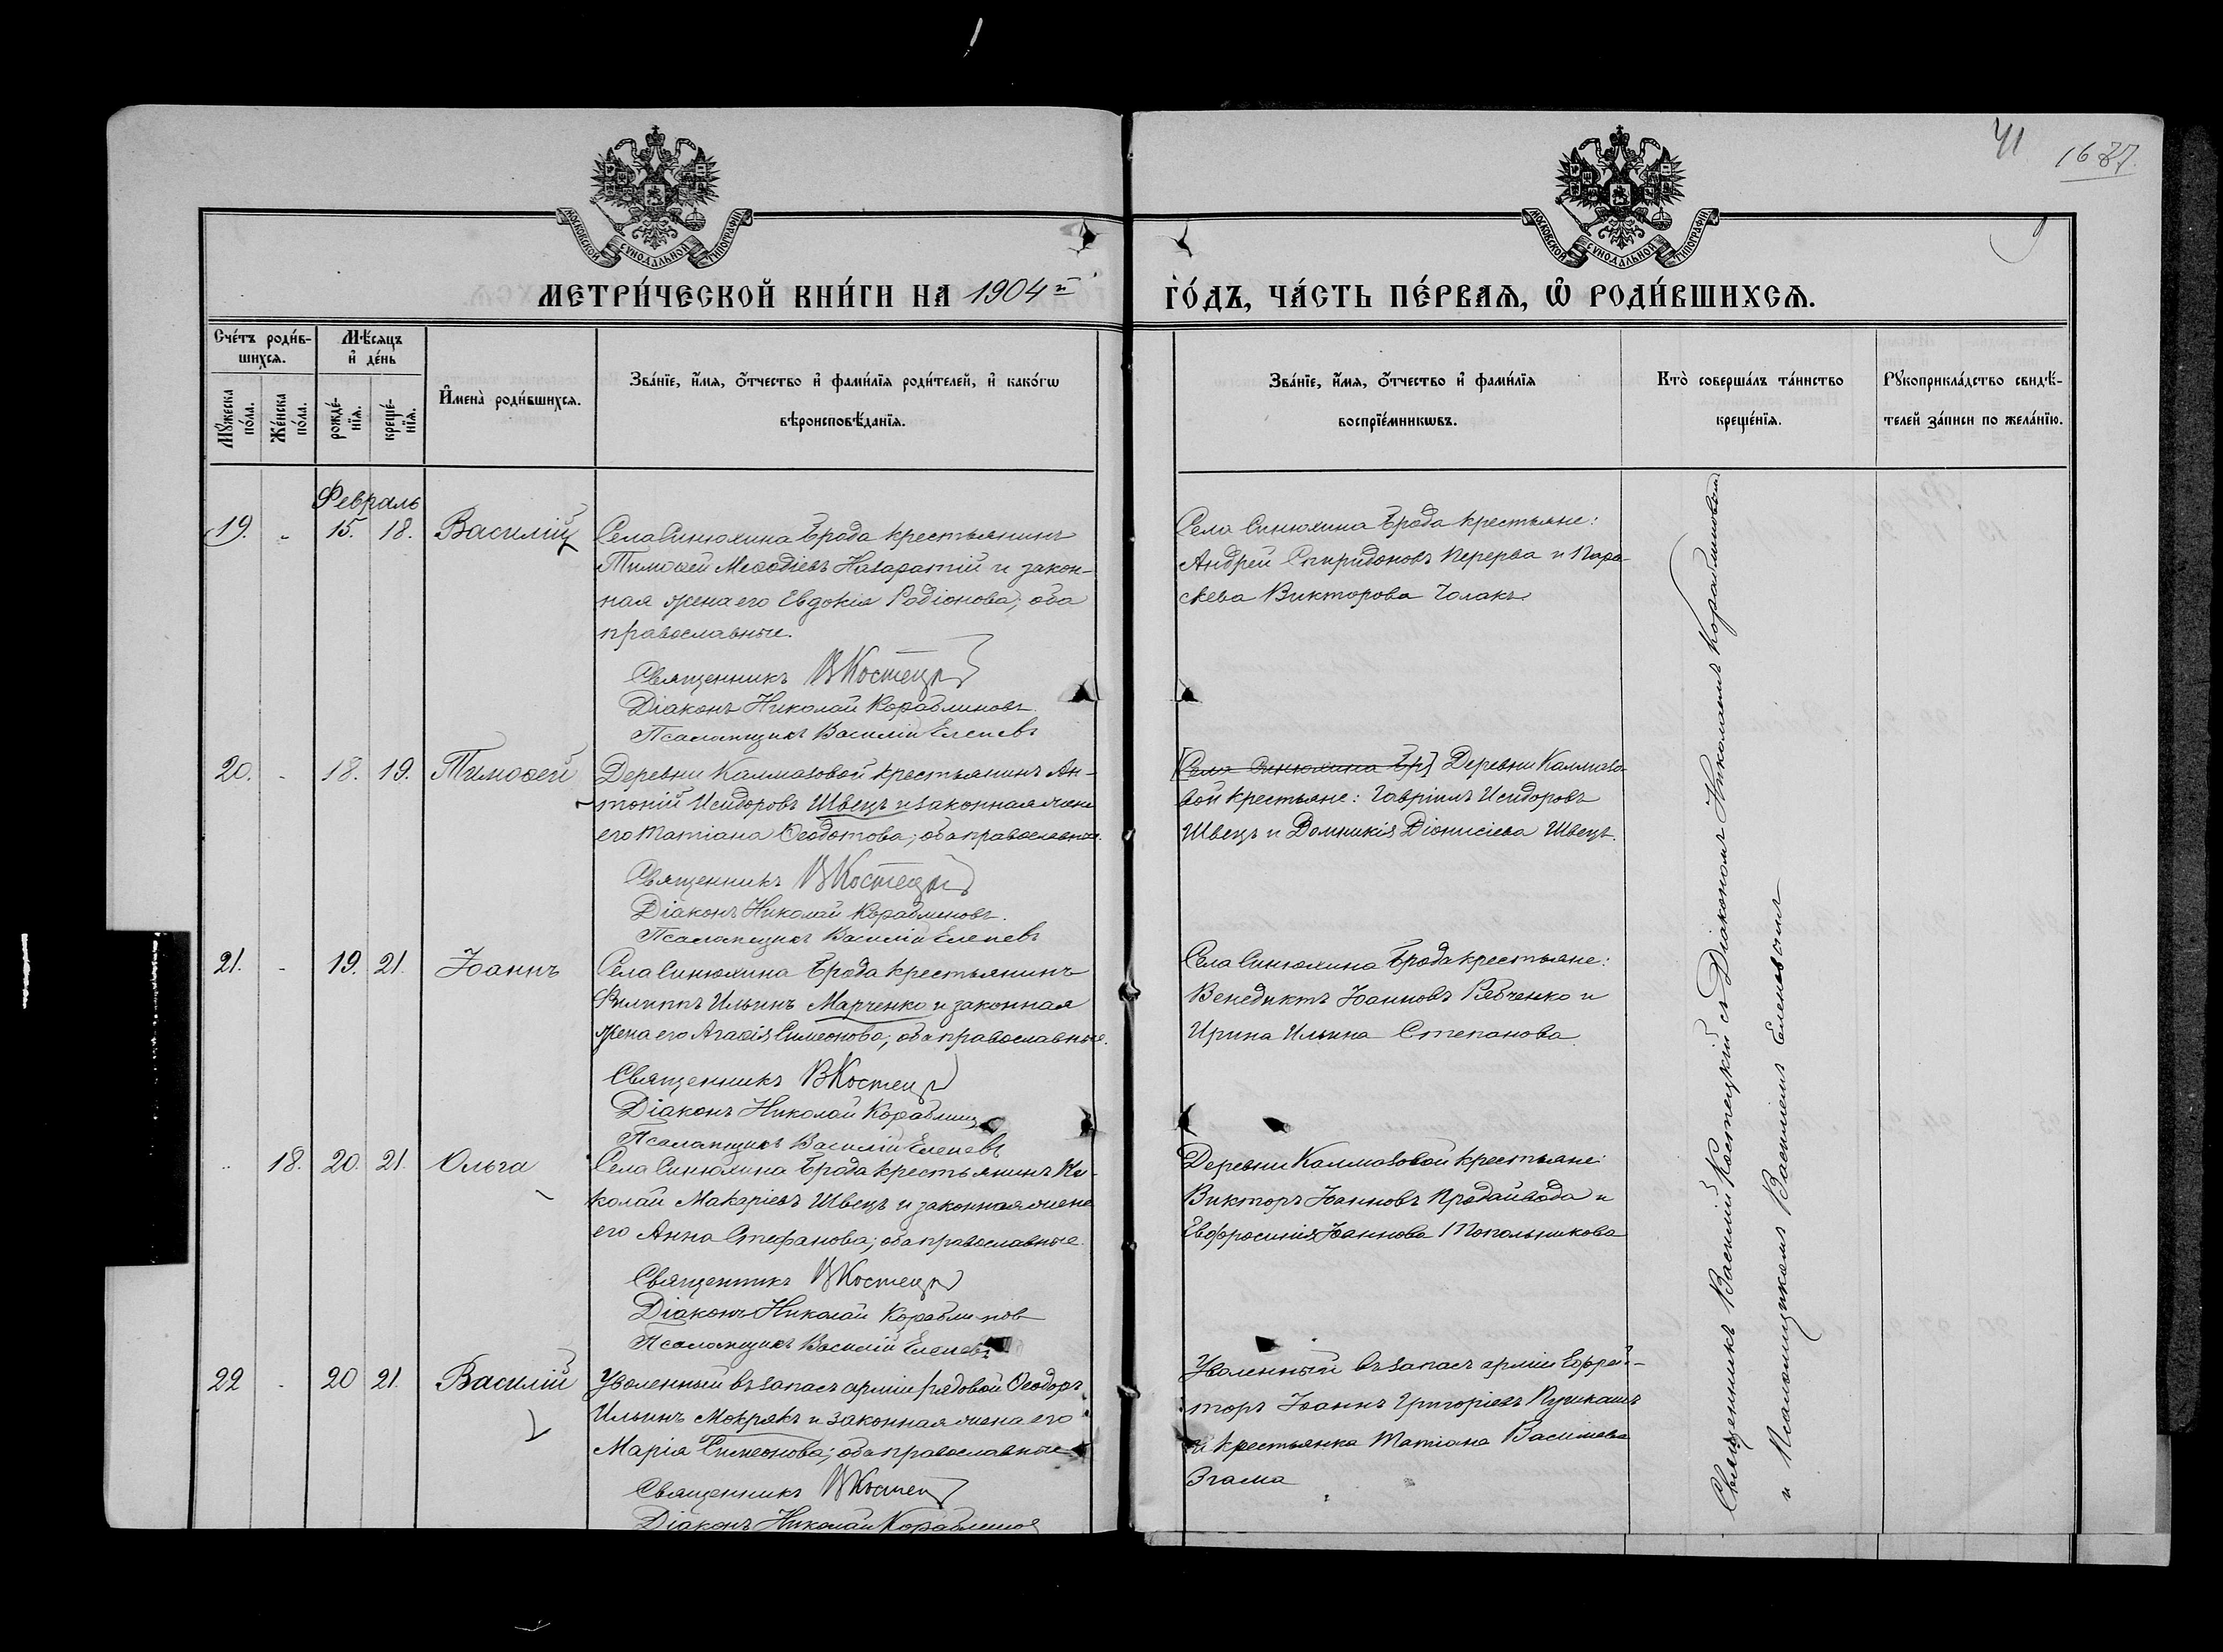 41
1687.
МОСКОВСКОЙ СУНОДАЛЬНОЙ ТИПОГРАФІИ
МОСКОВСКОЙ СУНОДАЛЬНОЙ ТИПОГРАФІИ
МЕТРИ́ЧЕСКОЙ КНИ́ГИ НА 1904й
ГО́ДЪ, ЧА́СТЬ ПЕ́РВАѦ, Ѽ РОДИ́ВШИХСѦ.
Сче́тъ роди́в-
шихся.
Му́жеска по́ла.
Же́нска по́ла.
Мѣ́сяцъ
и де́нь
рожде́-
нія.
креще́-
нія.
Имена̀ роди́вшихся.
Зва́ніе, и́мя, о́тчество и фами́лія роди́телей, и како́гѡ
вѣроисповѣ́данія.
Зва́ніе, и́мя, о́тчество и фами́лія
воспріе́мникѡвъ.
Кто̀ соверша́лъ та́инство
креще́нія.
Рукоприкла́дство свидѣ́-
телей за́писи по жела́нію.
Февраль
19. - 15. 18. Василій
Села Синюхина Брода крестьянинъ
Тимоѳей Меѳодіевъ Назаратій и закон-
ная жена его Евдокія Родіонова; оба
православные.
Священникъ В Костецкій
Діаконъ Николай Кораблиновъ.
Псаломщикъ Василій Елепевъ
Села Синюхина Брода крестьяне:
Андрей Спиридоновъ Перерва и Пара-
скева Викторова Чолакъ.
20. - 18. 19. Тимоѳей
Деревни Калмазовой крестьянинъ Ан-
тоній Исидоровъ Швецъ и законная жена
его Татіана Ѳеодотова; оба православные.
Священникъ В Костецкій
Діаконъ Николай Кораблиновъ.
Псаломщикъ Василій Елепевъ
[Села Синюхина Бр] Деревни Калмазо-
вой крестьяне: Гавріилъ Исидоровъ
Швецъ и Домникія Діонисіева Швецъ.
21. - 19. 21. Іоаннъ
Села Синюхина Брода крестьянинъ
Филиппъ Ильинъ Марченко и законная
жена его Агаѳія Симеонова; оба православные.
Священникъ В Костецкій
Діаконъ Николай Кораблин
Псаломщикъ Василій Елепевъ
Села Синюхина Брода крестьяне:
Венедиктъ Іоанновъ Рябченко и
Ирина Ильина Степанова.
" 18. 20. 21. Ольга
Села Синюхина Брода крестьянинъ Ни-
колай Макаріевъ Швецъ и законная жена
его Анна Стефанова; оба православные.
Священникъ В Костецкій
Діаконъ Николай Кораблинов
Псаломщикъ Василій Елепевъ
Деревни Калмазовой крестьяне:
Викторъ Іоанновъ Продайвода и
Евфросинія Іоаннова Топольникова
22 - 20 21. Василій
Уволенный въ запасъ арміи рядовой Ѳеодоръ
Ильинъ Мокрякъ и законная жена его
Марія Симеонова; оба православные
Священникъ В Костецкій
Діаконъ Николай Кораблинов
Уволенный въ запасъ арміи Ефрей-
торъ Іоаннъ Григоріевъ
и крестьянка Татіана Василіева
Згама
Священникъ Василій Костецкій съ Діакономъ Николаемъ Кораблиновымъ
и Псаломщикомъ Василіемъ Елепевымъ